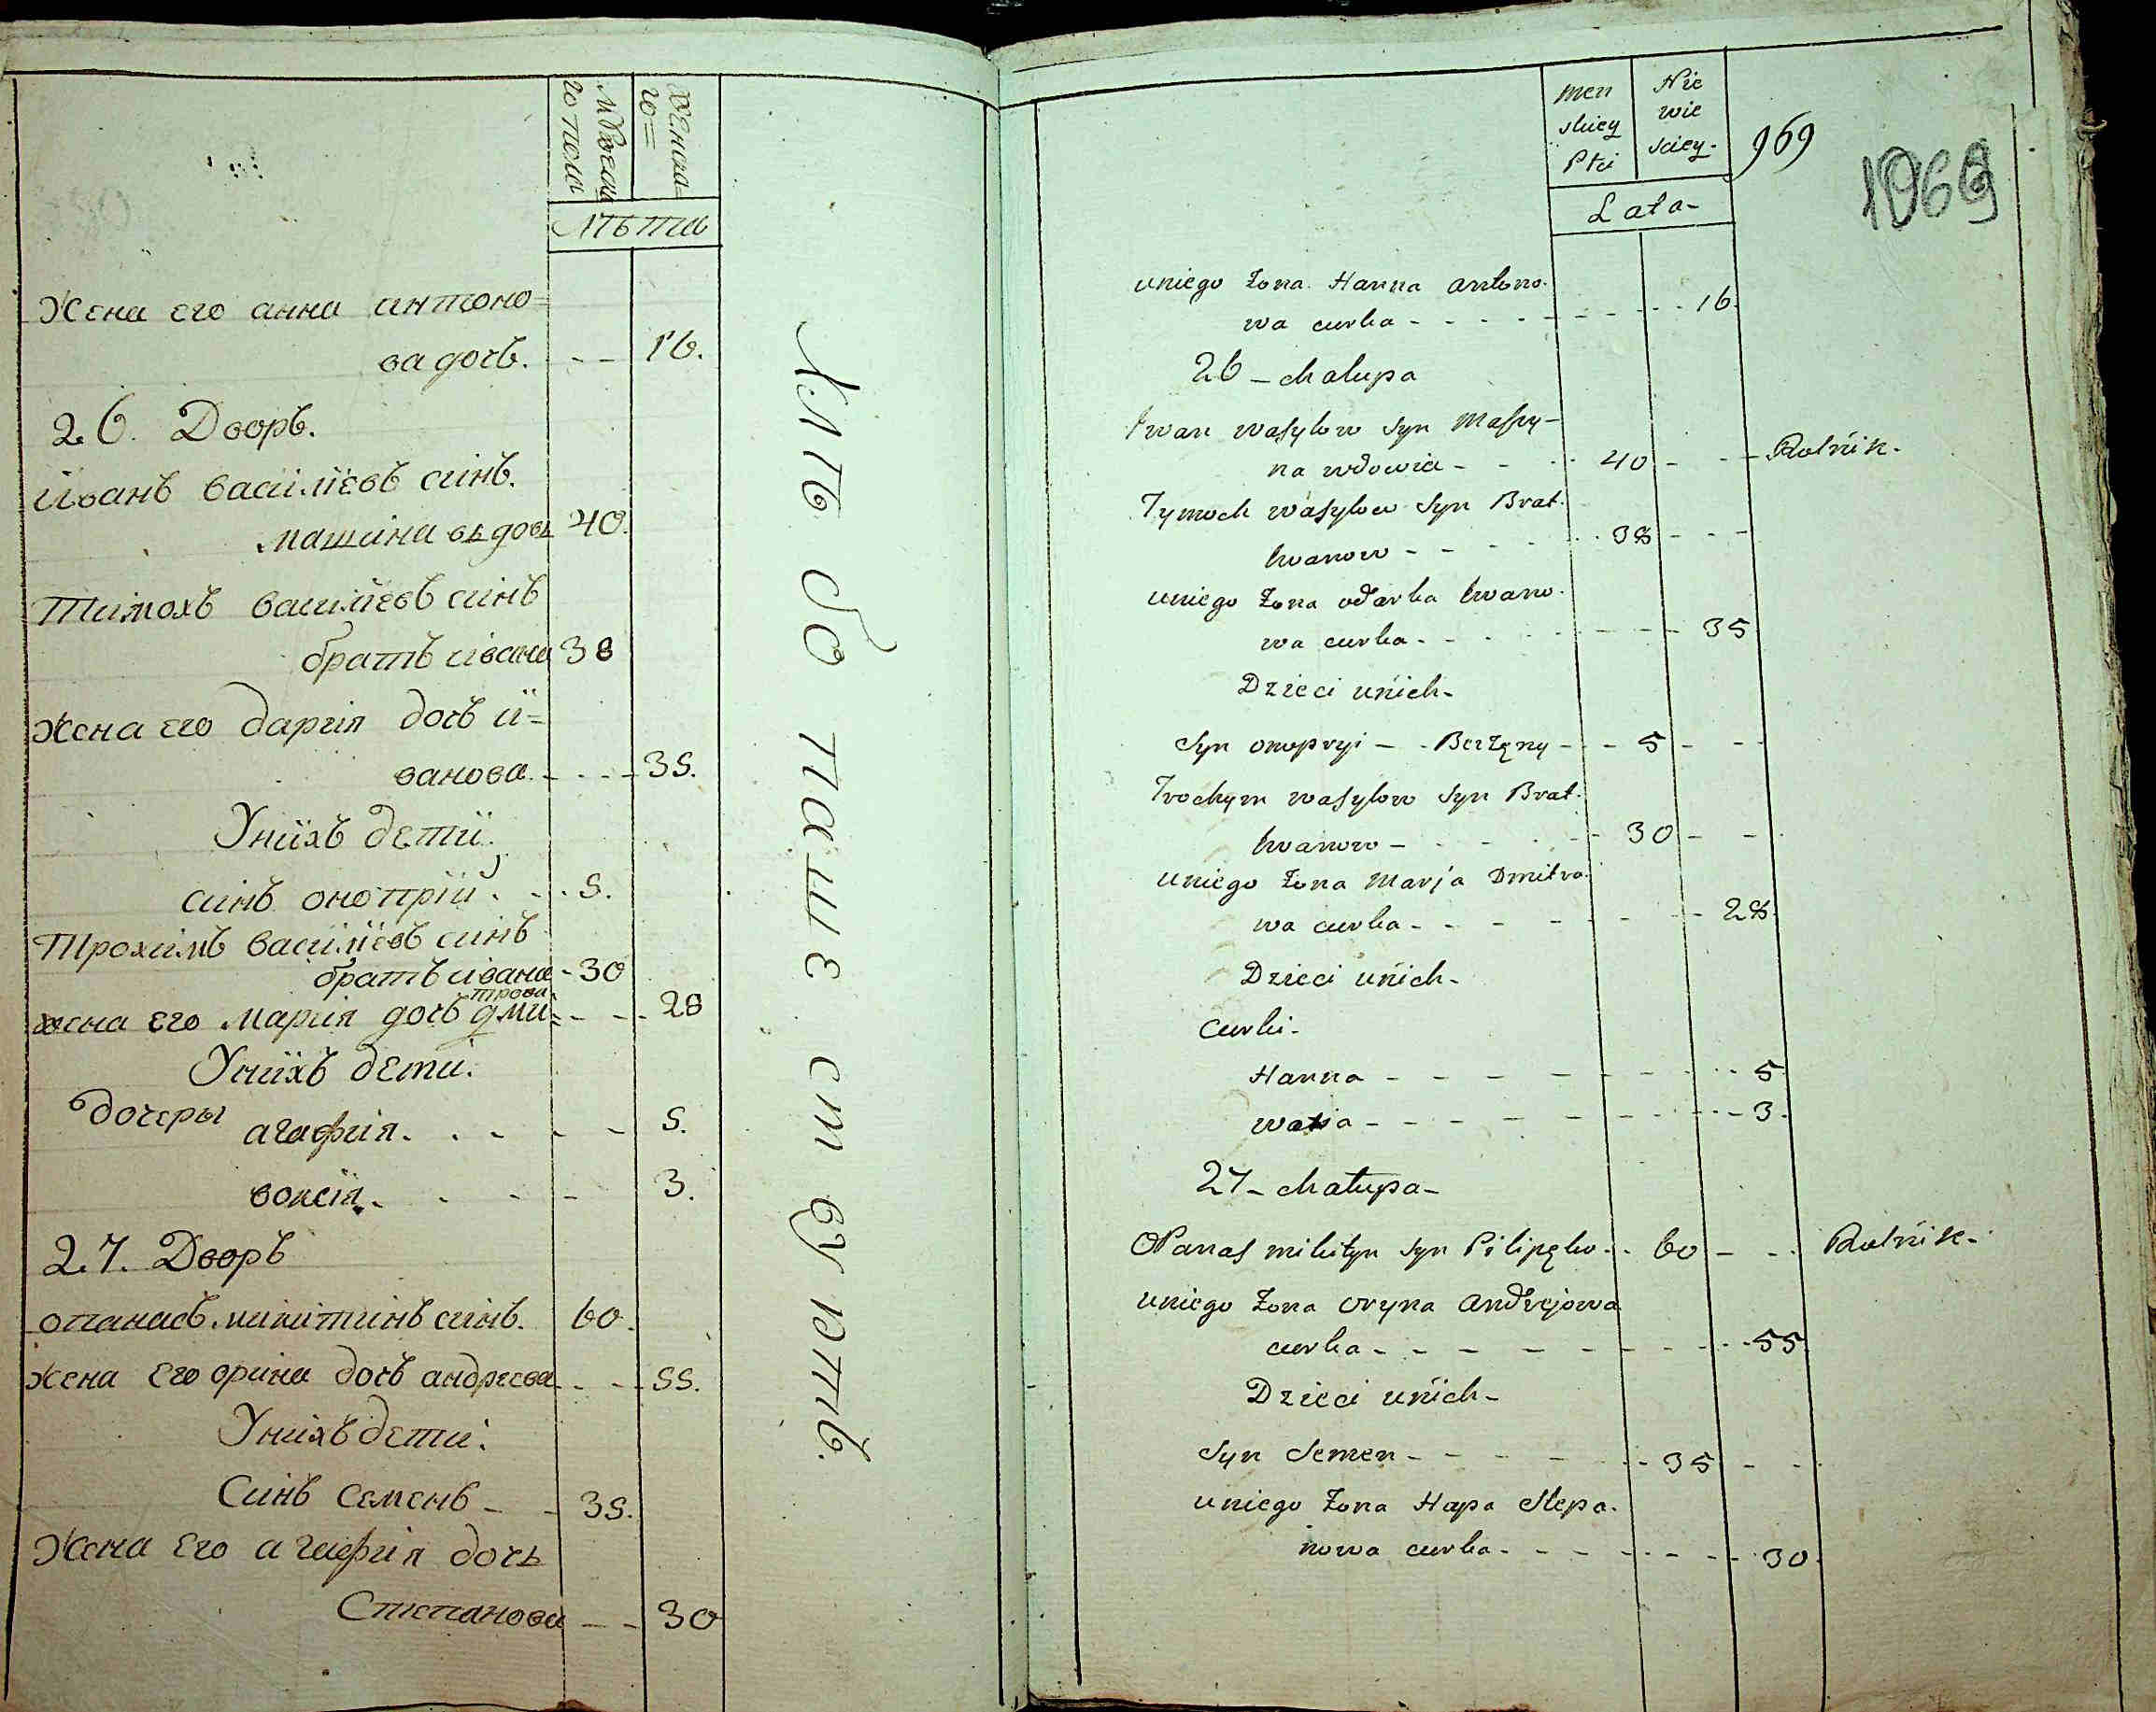 мужеска
го полу
женска=
го=
лѣта
Жена его анна антоно=
ва дочь. - - 16.
26. Дворъ.
іванъ василіевъ синъ.
машина вьдовь 40.
Тимохъ василіевъ синъ
братъ івана 38
жена его дария дочъ и=
ванова - - - 35.
Унихъ дети.
синъ онопрій. - . 5.
Трохимъ василіевъ синъ
братъ івана - 30
трова
жена его мария дочъ дми= - - - 28
Унихъ дети.
дочеры агафия. . - - - 5.
воксія. - - - 3.
27. Дворъ
опанасъ микитинъ синъ. 60.
жена его орина дочъ андреева - - - 55.
Унихъ дети:
Синъ Семенъ - - 35.
Жена его агафия дочь
Степанова - - 30
хлѣбопашествуетъ.
men
skiey
Płci
Nie
wie
sciey.
969
1069
Lata-
uniego Żona Hanna antono-
wa curka - - - - 16.
26 - chałupa
Iwan wasylow syn Maszy-
na wdowia - - - 40 - - - Rolnik.
Tymoch wasylow syn Brat.
Iwanow - - - - 38 - - -
uniego Żona odarka Iwano-
wa curka - - - - 35
Dzieci unich-
Syn onopryi - - Berżęny - - 5 - - -
Trochym wasylow syn Brat.
Iwanow - - - - 30 - -
uniego Żona Marja Dmitro-
wa curka - - - - 28.
Dzieci unich-
Curki-
Hanna - - - - - 5
watia - - - - - 3.
27 - chatupa-
OPanas mikityn syn Pilipęko - . 60 - - . Rolnik-
uniego Żona oryna andrejowa
curka - - - - - 55
Dzieci unich-
Syn Semen - - - - 35 - -
uniego Żona Hapa Stepa-
nowa curka - - - - 30.